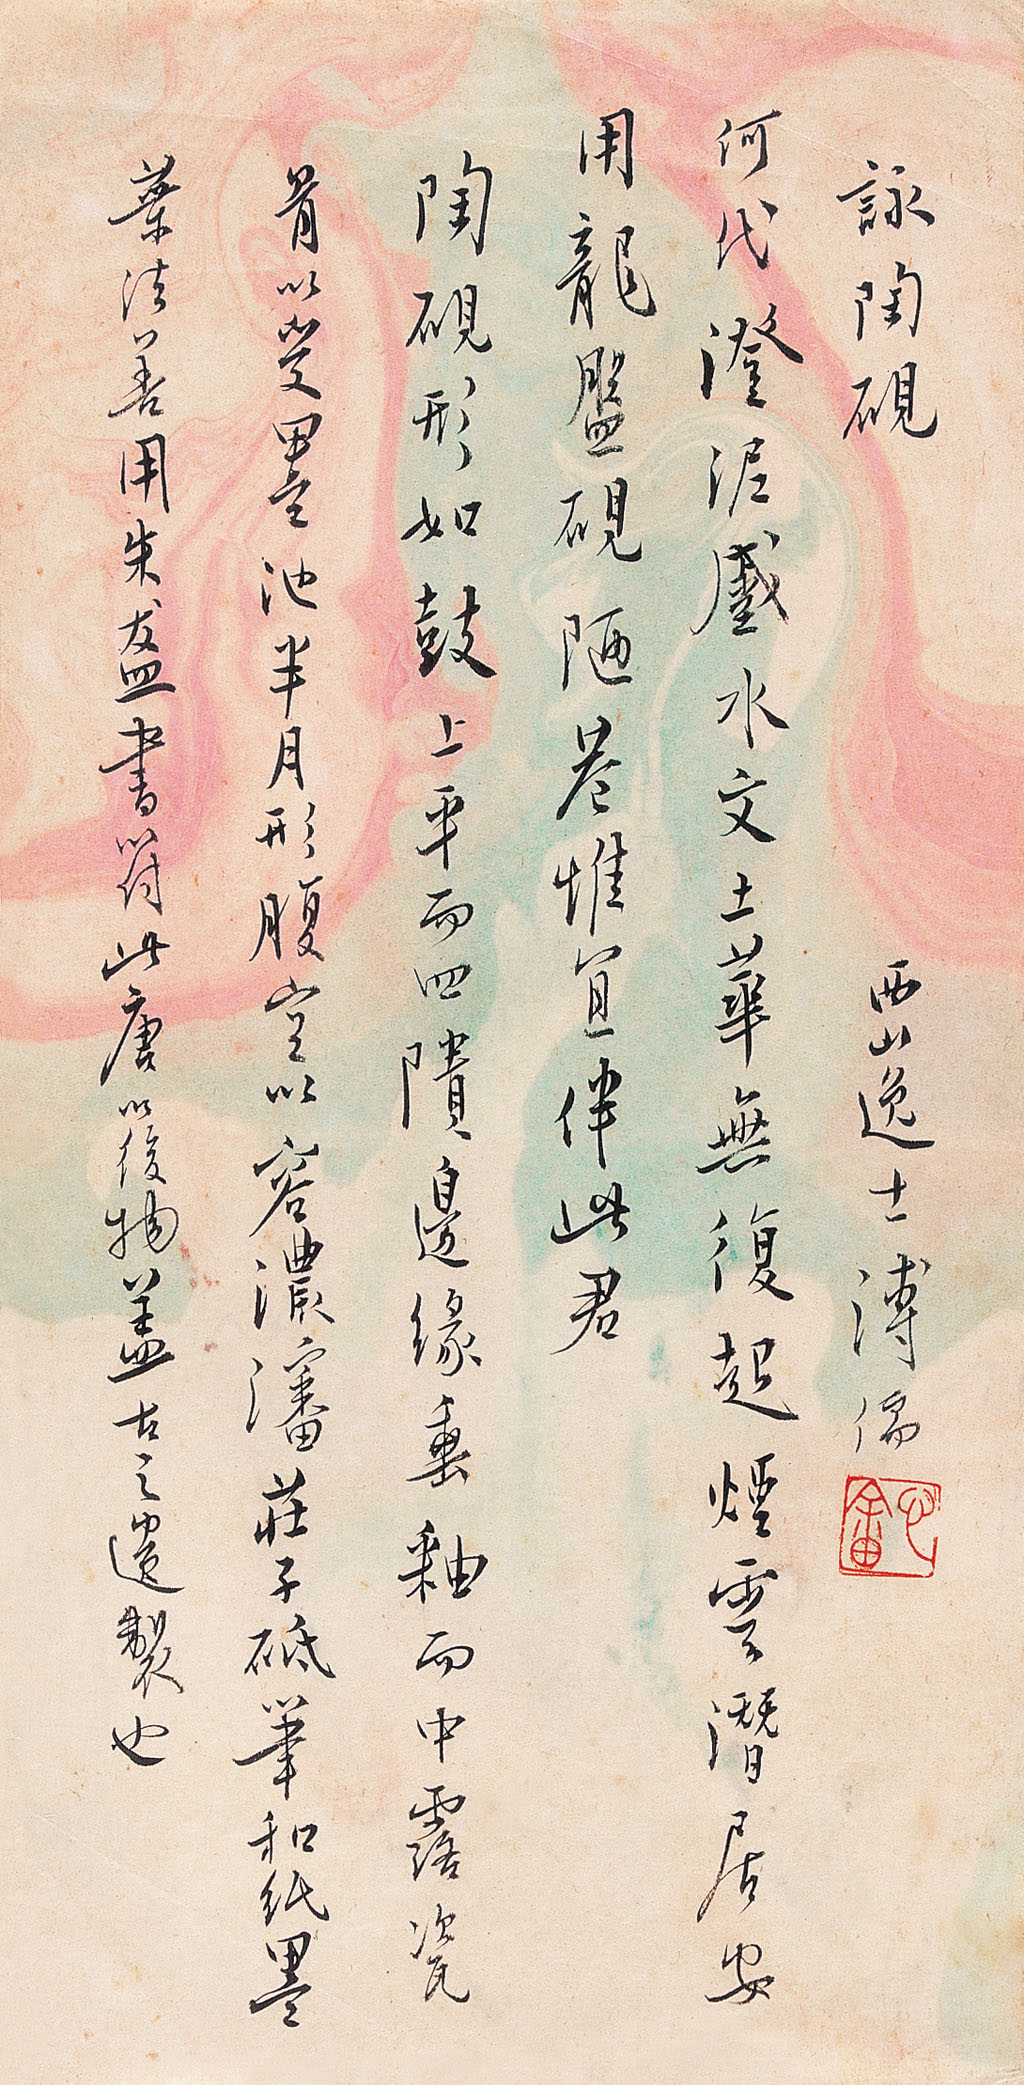 詠陶硯 西山逸士溥儒
心畬
何代澄泥蹙水文土華無復起煙雲潛居安
用龍盤硯陋巷惟宜伴此君
陶硯形如鼓上平而四隤邊緣垂釉而中露瓷
骨以受墨池半月形腹空以容濃瀋莊子砥筆和紙墨
葉法善用朱盋書符此唐以後物盖古之遺製也